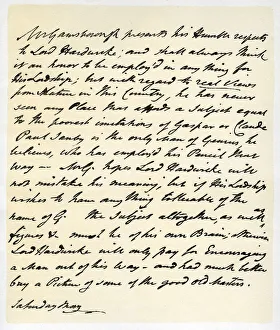 Mr Gainsborough presents his Humble respects
to Lord Hardwicke; and shall always think
it an honor to be employ'd in any thing for
His Lordship; but with regard to real Views
from Nature in this Country, he has never
seen any Place that affords a Subject equal
to the poorest imitations of Gaspar or Claude
Paul Sanby is the only Man of Genius, he
believes, who has employ'd his Pencil that
way — Mr G. hopes Lord Hardwicke will
not mistake his meaning, but if His Lordship
wishes to have any thing tollerable of the
name of G. the Subject altogether, as well as
figures &c must be of his own Brain; otherwise
Lord Hardwicke will only pay for Encouraging
a Man out of his Way — and had much better
buy a Picture of some of the good old Masters.
Saturday Morg